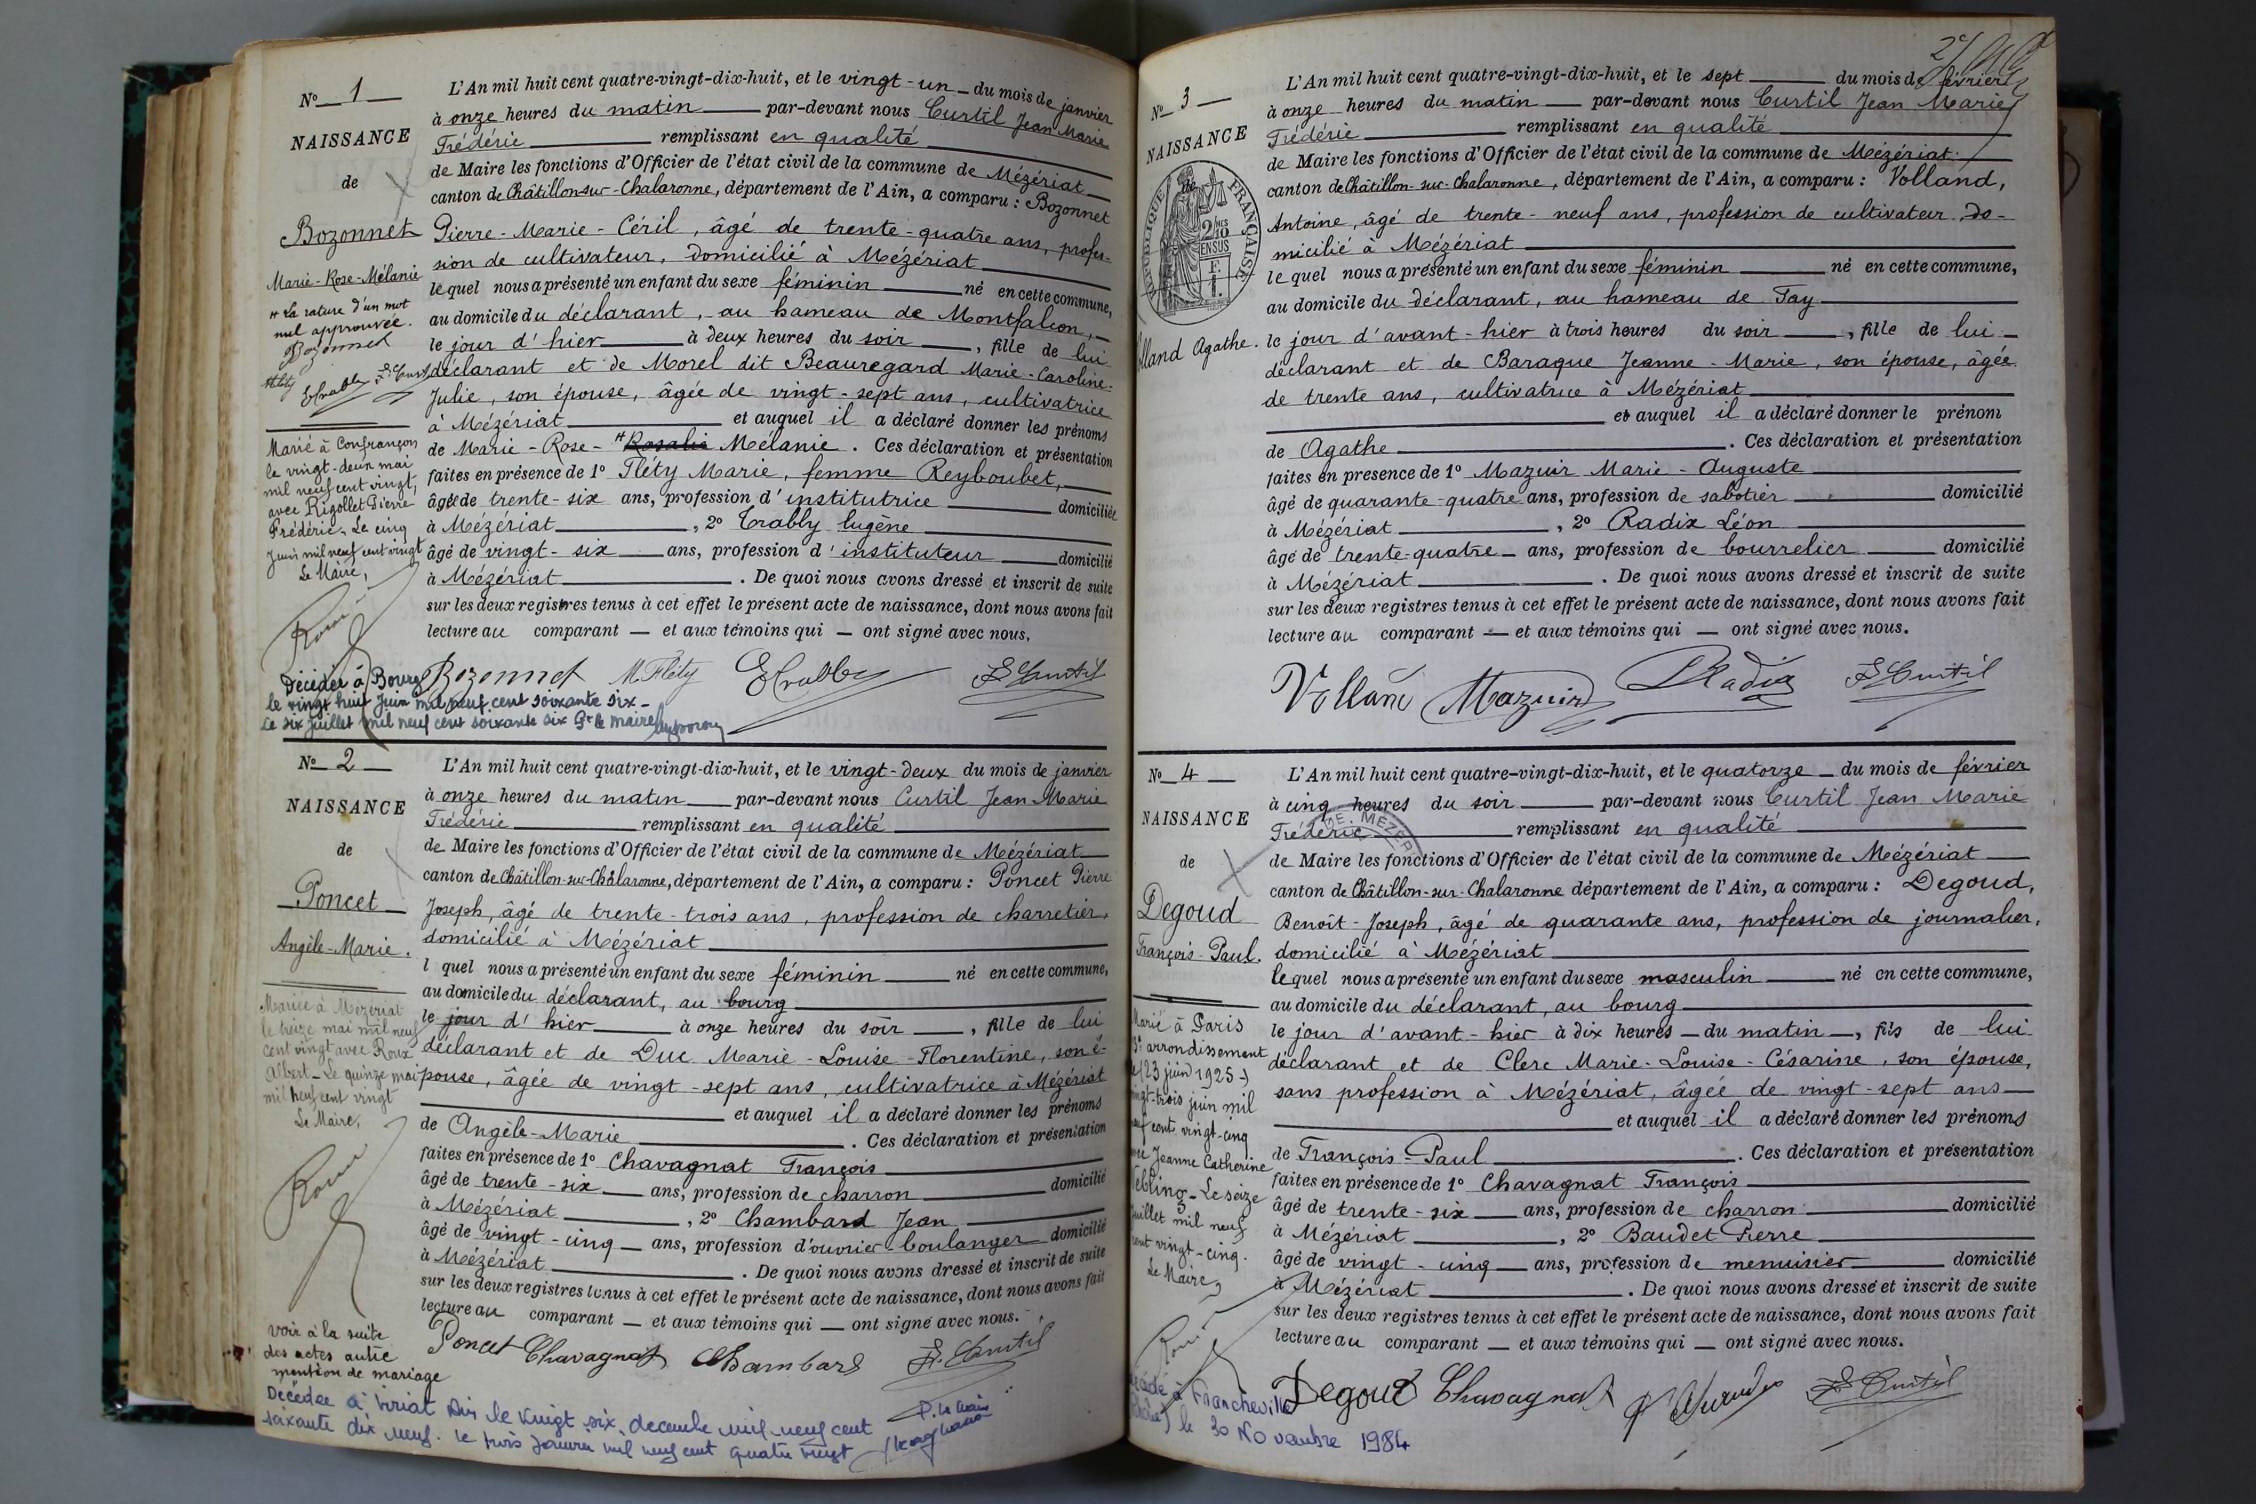 N° 1
NAISSANCE
de
Bozonnet
Marie-Rose-Mélanie
La rature d'un mot
nul approuvée.
Bozonnet
Marié à Confrançon
le vingt-deux mai
mil neuf cent vingt,
avec Rigollet Pierre
Frédéric. Le cinq
Juin mil neuf cent vingt
Le Maire,
L'An mil huit cent quatre-vingt-dix-huit, et le vingt-un du mois de janvier
à onze heures du matin par-devant nous Curtil Jean Marie
Frédéric remplissant en qualité
de Maire les fonctions d'Officier de l'état civil de la commune de Mézériat
canton de Châtillon-sur-Chalaronne, département de l'Ain, a comparu : Bozonnet
Pierre-Marie-Céril, âgé de trente-quatre ans, profes-
sion de cultivateur, domicilié à Mézériat
lequel nous a présenté un enfant du sexe féminin né en cette commune,
au domicile du déclarant, au hameau de Montfalcon,
le jour d'hier à deux heures du soir, fille de lui
déclarant et de Morel dit Beauregard Marie-Caroline-
Julie, son épouse, âgée de vingt-sept ans, cultivatrice
à Mézériat et auquel il a déclaré donner les prénoms
de Marie-Rose-Rosalie Mélanie. Ces déclaration et présentation
faites en présence de 1° Fléty Marie, femme Reyboubet,
âgée de trente-six ans, profession d'institutrice domiciliée
à Mézériat, 2° Crabby Eugène
âgé de vingt-six ans, profession d'instituteur domicilié
à Mézériat. De quoi nous avons dressé et inscrit de suite
sur les deux registres tenus à cet effet le présent acte de naissance, dont nous avons fait
lecture au comparant et aux témoins qui ont signé avec nous.
Bozonnet M. Fléty ECrabby F. Curtil
Décédée à Bourg
le vingt huit Juin mil neuf cent soixante six
Le six Juillet mil neuf cent soixante six Pr le maire
N° 2
NAISSANCE
de
Poncet
Angèle-Marie.
Mariée à Mézériat
le treize mai mil neuf
cent vingt avec Roux
Albert. Le quinze mai
mil neuf cent vingt
Le Maire,
voir à la suite
des actes autre
mention de mariage
L'An mil huit cent quatre-vingt-dix-huit, et le vingt-deux du mois de janvier
à onze heures du matin par-devant nous Curtil Jean Marie
Frédéric remplissant en qualité
de Maire les fonctions d'Officier de l'état civil de la commune de Mézériat
canton de Châtillon-sur-Chalaronne, département de l'Ain, a comparu : Poncet Pierre
Joseph, âgé de trente-trois ans, profession de charretier,
domicilié à Mézériat
l quel nous a présenté un enfant du sexe féminin né en cette commune,
au domicile du déclarant, au bourg
le jour d'hier à onze heures du soir, fille de lui
déclarant et de Duc Marie-Louise-Florentine, son é-
pouse, âgée de vingt-sept ans, cultivatrice à Mézériat
et auquel il a déclaré donner les prénoms
de Angèle-Marie. Ces déclaration et présentation
faites en présence de 1° Chavagnat François
âgé de trente-six ans, profession de charron domicilié
à Mézériat, 2° Chambard Jean
âgé de vingt-cinq ans, profession d'ouvrier-boulanger domicilié
à Mézériat. De quoi nous avons dressé et inscrit de suite
sur les deux registres tenus à cet effet le présent acte de naissance, dont nous avons fait
lecture au comparant et aux témoins qui ont signé avec nous.
Poncet Chavagnat Chambard F. Curtil
Décédée à Viriat Ain le vingt six decembre mil neuf cent
soixante dix neuf. Le trois Janvier mil neuf cent quatre vingt
P. le Maire
N° 3
NAISSANCE
de
RÉPUBLIQUE FRANÇAISE
2/10
EN SUS
Volland Agathe.
L'An mil huit cent quatre-vingt-dix-huit, et le sept du mois de février
à onze heures du matin par-devant nous Curtil Jean Marie
Frédéric remplissant en qualité
de Maire les fonctions d'Officier de l'état civil de la commune de Mézériat
canton de Châtillon-sur-Chalaronne, département de l'Ain, a comparu : Volland,
Antoine, âgé de trente-neuf ans, profession de cultivateur, do-
micilié à Mézériat
lequel nous a présenté un enfant du sexe féminin né en cette commune,
au domicile du déclarant, au hameau de Fay
le jour d'avant-hier à trois heures du soir, fille de lui
déclarant et de Baraque Jeanne-Marie, son épouse, âgée
de trente ans, cultivatrice à Mézériat
et auquel il a déclaré donner le prénom
de Agathe. Ces déclaration et présentation
faites en présence de 1° Mazuir Marie-Auguste
âgé de quarante-quatre ans, profession de sabotier domicilié
à Mézériat, 2° Radix Léon
âgé de trente-quatre ans, profession de bourrelier domicilié
à Mézériat. De quoi nous avons dressé et inscrit de suite
sur les deux registres tenus à cet effet le présent acte de naissance, dont nous avons fait
lecture au comparant et aux témoins qui ont signé avec nous.
Volland Mazuir LRadix F. Curtil
N° 4
NAISSANCE
de
Degoud
François-Paul.
Marié à Paris
arrondissement
23 juin 1925
vingt-trois juin mil
neuf cent vingt-cinq
Jeanne Catherine
Le seize
Juillet mil neuf
cent vingt-cinq.
Le Maire,
L'An mil huit cent quatre-vingt-dix-huit, et le quatorze du mois de février
à cinq heures du soir par-devant nous Curtil Jean Marie
Frédéric remplissant en qualité
DE MÉZÉR
de Maire les fonctions d'Officier de l'état civil de la commune de Mézériat
canton de Châtillon-sur-Chalaronne département de l'Ain, a comparu : Degoud,
Benoît-Joseph, âgé de quarante ans, profession de journalier,
domicilié à Mézériat
lequel nous a présenté un enfant du sexe masculin né en cette commune,
au domicile du déclarant, au bourg
le jour d'avant-hier à dix heures du matin, fils de lui
déclarant et de Clerc Marie-Louise-Césarine, son épouse,
sans profession à Mézériat, âgée de vingt-sept ans
et auquel il a déclaré donner les prénoms
de François-Paul. Ces déclaration et présentation
faites en présence de 1° Chavagnat François
âgé de trente-six ans, profession de charron domicilié
à Mézériat, 2° Baudet Pierre
âgé de vingt-cinq ans, profession de menuisier domicilié
à Mézériat. De quoi nous avons dressé et inscrit de suite
sur les deux registres tenus à cet effet le présent acte de naissance, dont nous avons fait
lecture au comparant et aux témoins qui ont signé avec nous.
Degoud Chavagnat F. Curtil
Décédé à Francheville
(Rhône) le 30 Novembre 1984